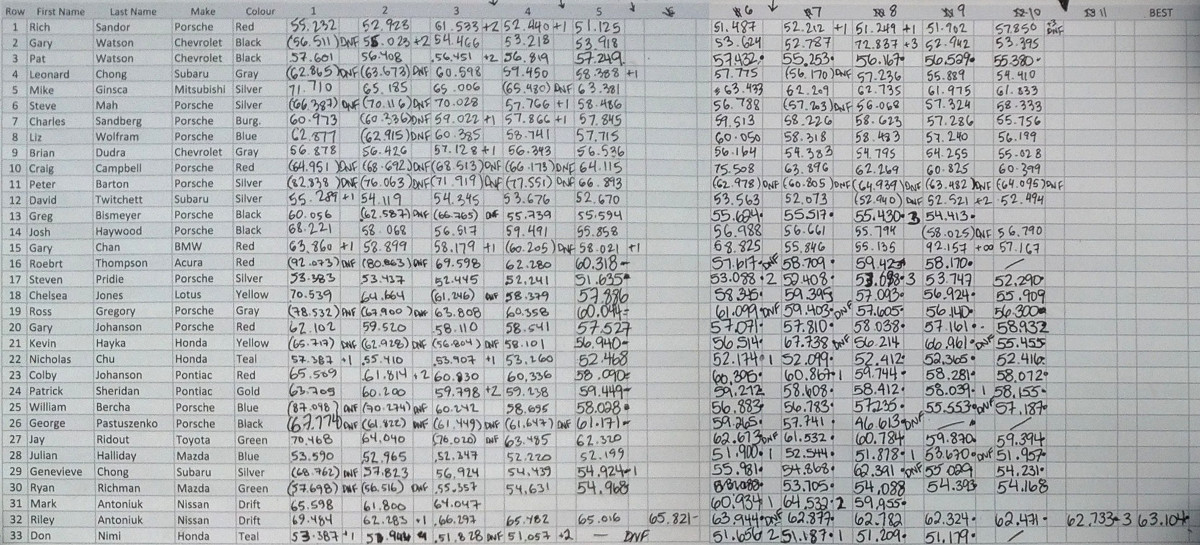 Row First Name Last Name Make Colour 1 2 3 4 5 6 #6 #7 #8 #9 #10 #11 BEST
1 Rich Sandor Porsche Red 55.232 52.928 61.533 +2 52.440 +1 51.125 51.487 52.212 +1 51.249 +1 51.702 57.850 DNF
2 Gary Watson Chevrolet Black (56.511) DNF 55.023 +2 54.466 53.218 53.918 53.624 52.787 72.887 +3 52.942 53.395
3 Pat Watson Chevrolet Black 57.601 56.408 56.451 +2 56.819 57.249 57.432 55.253 56.167 56.529 55.380
4 Leonard Chong Subaru Gray (62.865) DNF (63.673) DNF 60.598 59.450 58.388 +1 57.775 (56.170) DNF 57.236 55.889 54.410
5 Mike Ginsca Mitsubishi Silver 71.710 65.185 65.006 (65.480) DNF 63.381 63.433 62.209 62.735 61.975 61.833
6 Steve Mah Porsche Silver (66.387) DNF (70.116) DNF 70.028 57.766 +1 58.486 56.788 (57.203) DNF 56.068 57.324 58.333
7 Charles Sandberg Porsche Burg. 60.973 (60.336) DNF 59.022 +1 57.866 +1 57.845 59.513 58.226 58.623 57.286 55.756
8 Liz Wolfram Porsche Blue 62.877 (62.915) DNF 60.385 58.741 57.715 60.050 58.318 58.483 57.240 56.199
9 Brian Dudra Chevrolet Gray 56.878 56.426 57.128 +1 56.343 56.536 56.164 54.383 54.795 54.255 55.028
10 Craig Campbell Porsche Red (64.951) DNF (68.692) DNF (68.513) DNF (66.173) DNF 64.115 75.508 63.896 62.269 60.825 60.399
11 Peter Barton Porsche Silver (82.838) DNF (76.063) DNF (71.919) DNF (77.551) DNF 66.893 (62.978) DNF (60.805) DNF (64.939) DNF (63.482) DNF (64.095) DNF
12 David Twitchett Subaru Silver 55.289 +1 54.119 54.345 53.676 52.670 53.563 52.073 (52.940) DNF 52.521 +2 52.494
13 Greg Bismeyer Porsche Black 60.056 (62.587) DNF (66.765) DNF 55.739 55.594 55.624 55.517 55.430 54.413
14 Josh Haywood Porsche Black 68.221 58.068 56.517 59.491 55.858 56.988 56.661 55.794 (58.025) DNF 56.790
15 Gary Chan BMW Red 63.860 +1 58.899 58.179 +1 (60.205) DNF 58.021 +1 68.825 55.846 55.135 92.157 +∞ 57.167
16 Roebrt Thompson Acura Red (92.073) DNF (80.863) DNF 69.598 62.280 60.318 57.617 DNF 58.709 59.42 58.170 /
17 Steven Pridie Porsche Silver 53.383 53.437 52.445 52.241 51.635 53.088 2 52.408 53.098 3 53.747 52.290
18 Chelsea Jones Lotus Yellow 70.539 64.664 (61.246) DNF 58.379 57.886 58.345 59.395 57.093 56.924 55.909
19 Ross Gregory Porsche Gray (78.532) DNF (67.900) DNF 63.808 60.358 60.044 61.099 DNF 59.403 DNF 57.605 56.140 56.300
20 Gary Johanson Porsche Red 62.102 59.520 58.110 58.541 57.527 57.071 57.810 58.038 57.161 58.932
21 Kevin Hayka Honda Yellow (65.717) DNF (62.928) DNF (56.804) DNF 58.101 56.940 56.514 67.738 DNF 56.214 66.961 DNF 55.455
22 Nicholas Chu Honda Teal 57.387 +1 55.410 53.907 +1 53.260 52.468 52.174 1 52.099 52.412 52.365 52.416
23 Colby Johanson Pontiac Red 65.509 61.814 +2 60.830 60.336 58.090 60.395 60.867 1 59.744 58.281 58.072
24 Patrick Sheridan Pontiac Gold 63.705 60.200 59.798 +2 59.238 59.449 59.212 58.608 58.412 58.039 1 58.155
25 William Bercha Porsche Blue (87.098) DNF (70.274) DNF 60.242 58.695 58.028 56.883 56.783 57.235 55.553 DNF 57.187
26 George Pastuszenko Porsche Black (67.774) DNF (61.828) DNF (61.449) DNF (61.647) DNF 61.171 59.265 57.741 46.613 DNF / /
27 Jay Ridout Toyota Green 70.468 64.040 (76.020) DNF 63.485 62.320 62.673 DNF 61.532 60.784 59.870 59.394
28 Julian Halliday Mazda Blue 53.590 52.965 52.347 52.220 52.199 51.900 1 52.544 51.878 1 53.670 DNF 51.957
29 Genevieve Chong Subaru Silver (68.762) DNF 57.823 56.924 54.439 54.924 1 55.981 54.868 62.391 DNF 55.029 54.231
30 Ryan Richman Mazda Green (57.698) DNF (56.516) DNF 55.357 54.631 54.968 53.705 54.088 54.393 54.168
31 Mark Antoniuk Nissan Drift 65.598 61.800 64.047 60.934 1 64.532 2 59.955
32 Riley Antoniuk Nissan Drift 69.484 62.283 +1 66.297 65.482 65.016 65.821 63.944 DNF 62.877 62.782 62.324 62.471 62.733 3 63.104
33 Don Nimi Honda Teal 53.387 +1 51.828 DNF 51.057 +2 — DNF 51.656 2 51.187 1 51.209 51.179 /